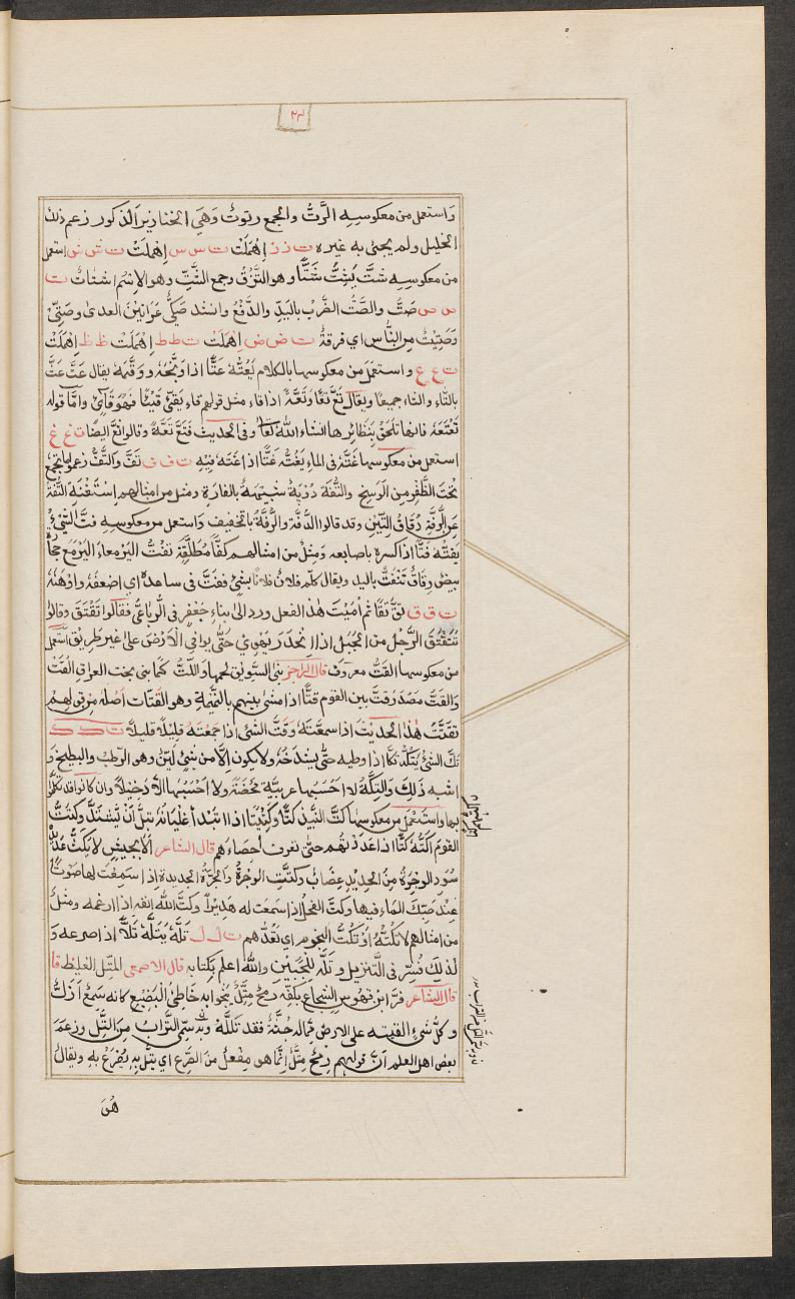 ٢٣
واستعمل من معكوسه الرَّتُّ والجمع رتوتٌ وَهِيَ الخنازير الذكور زعم ذلك
الخليل ولم يجئ به غيره ت ز ز اهْمِلَتْ ت س س اهْمِلَتْ ت ش ش استعمل
من معكوسه شتَّ يَشِتُّ شَتًّا وهو التفرّق وجمع الشَّتّ وهو الاسم اشتات ت
ص ص صَتَّ والصَّتُّ الضَّرْب باليَد والدَّفْعُ وانشد صَكِّى عَرَانين العدى وصَتِّىْ
وَصَتِيْتٌ من النَّاس اي فرقةٌ ت ض ض اهْمِلَتْ ت ط ط اهْمِلَتْ ظ ظ اهْمِلَتْ
ت ع ع واستعمل من معكوسها بالكلام يَعُتُّهُ عَتًّا اذا وَبَّخَهُ ووَقَّمَهُ يقال عَتَّ عَثَّ
بالتَّاء والثاء جميعًا ويقال تَعَّ تَعًّا وتَعَّةً اذا قاء مثل قولهم قاء يَقئ قَيْئًا فهُوَ قَآئِئ وامَّا قوله
تَعْتَعَهُ فانها تلحق بنظائرها انشاء الله تعا وفى الحديث فَتَعَّ تَعَّةً وقالوا اتعَّ ايضًا ت غ غ
استعمل من معكوسها غَتَّهُ فى الماءِ يَغُتُّهُ غَتًّا اذا غَتَّه فيْهِ ت ف ف تَفَّ والتُّفُّ زعموا ما يجتمع
تَحْتَ الظُّفْرِ من الوَسِخ والتُّفَّة دُوَيْبَةٌ شبيهةٌ بالفارَةِ ومثل من امثالهم اسْتَغْنَتِ التُّفَّةُ
عن الرُّفَّةِ دُقَاق التِّبْنِ وقد قالوا التُّفَة والرُّفَةُ بالتخفيف واستعمل من معكوسه فتَّ الشَّئَ
يَفُتُّه فَتًّا اذا كسرهُ باصابعه وَمِثلٌ من امثالهم كفًّا مُطَلَّقَة تفتُّ اليَرْمعاء اليَرْمَع حجارةٌ
بيض رِقَاقٌ تَنْفَتُّ باليد ويقال كلّم فلانٌ فلانًا بشئ ففَتَّ فى ساعدهِ اي اضعفهُ واوْهَنَهُ
ت ق ق تَقَّ تَقًّا ثم أُمِيْتَ هذا الفعل ورد الى بناءِ جَعْفر فى الرباعى فقالوا تَقْتَقَ وقالوا
تَتَقْتَقَ الرَّجُل من الجَبَل اذا انحَدَر يَهْوِي حَتّى ياتى الارْضَ على غير طَريْق استعمل
من معكوسها القَتُّ معروفٌ قال الراجز بنى السَّويق لحمها واللَّتُّ كما بنى بخت العراق القَتُّ
وَالقَتُّ مَصْدَر قتَّ بين القوم قتًّا اذا مشى بينهم بالنَّميمة وهو القَتّات أصله من قولهم
تقتَّتُّ هٰذَا الحديث اذا سمعتَهُ وَقتُّ الشئ اذا جمعتَهُ قليلًا قليلًا ت ك ك
تكَّ الشئ يَتُكّه تَكًّا اذا وطيه حتَّى يشدخَهُ ولا يكون الّا من شئ ليّن وهو الرّطب والبطيخ و
اشبه ذٰلِكَ والتِكَّةُ لا احْسَبُها عربيَّة مَحْضَة ولا احْسبُها الّا دَخيلا وان كانوا قد تكلّموا
بها واستُعْمِلَ من معكوسها كتَّ النبيْذُ كتًّا وكَتِيْتًا اذا ابتدأ غليانُهُ قبلَ أن يَشْتَدَّ وكتتُّ
القومَ اَكُتُّهُ كَتًّا اذا عَدَدْتُهُمْ حتى تعرف أحصاءَهم قال الشاعر الّا بجيشٍ لا يُكَتُّ عَديدُهُ
سُوْدِ الوجُوهِ مِنَ الحدِيْدِ غِضَابُ وكتَّتِ الوجْرَةُ والجرَّةُ الجديدة اذا سَمِعْتَ لها صَوْتًا
عندَ صَبِّكَ المَاءِ فيها وكتَّ الفحلُ اذا سَمعْتَ له هَدِيْرًا وكتَّ اللهُ انفه اذا ارغمه ومثلٌ
من امثالهم لا تكتُّهُ او تكتُّ النجومَ اي تعُدُّهم ت ل ل تَلَّهُ يَتُلُّهُ تَلًّا اذا صرعه و
كذلك فُسِّرَ فى التنزيل وتَلَّه لِلْجَبِيْنِ واللهُ اعلم بِكتابه قال الاصمعى المتلّ الغليظ قا
قال الشاعر فرَّ ابن قهوس الشجاع بكفّه رمحٌ مِتَلُّ يَنْجُوا به خاطى البَضِيْع كانه سَمِعٌ أزَلُّ
وكلُّ شئ القيته على الارض ممّا له جُثَّةٌ فقد تَلَلْتَهُ وبه سُمّى التُّرَابُ مِنَ التَّلّ وزعَمَ
بعض اهل العلم أنَّ قولهم رمح مِتَلٌّ انَّما هى مِفْعَلٌ مِنَ الصَّرْع اي يُتَلُّ به يُصْرَعُ به ويقالُ
هُوَ